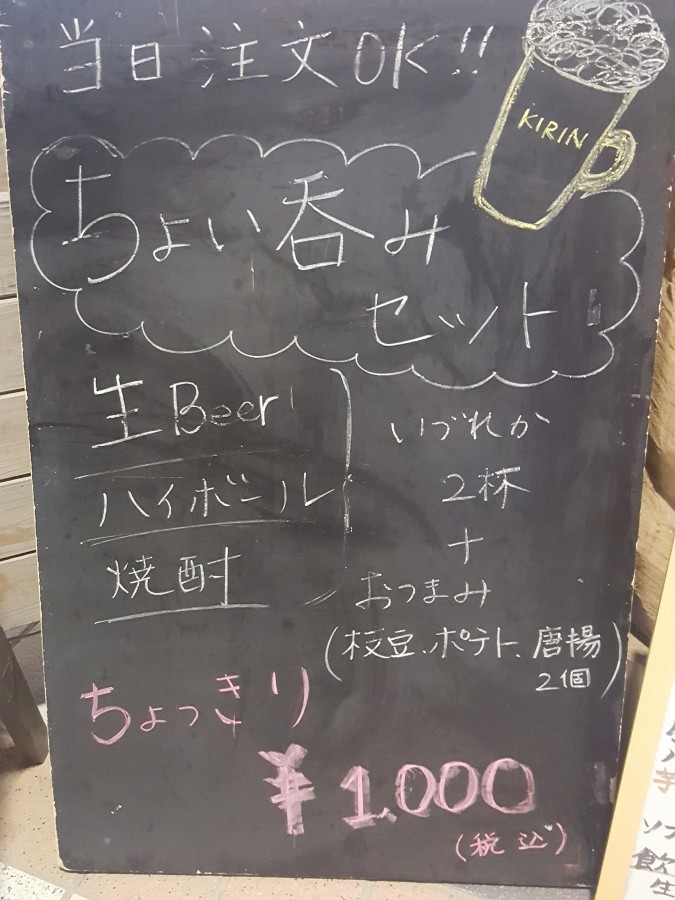 当日注文OK!!
KIRIN
ちょい呑み
セット
生Beer
ハイボール
焼酎
いづれか
2杯
+
おつまみ
(枝豆、ポテト、唐揚
2個)
ちょっきり
¥1,000
(税込)
芋
ソフ
飲
生